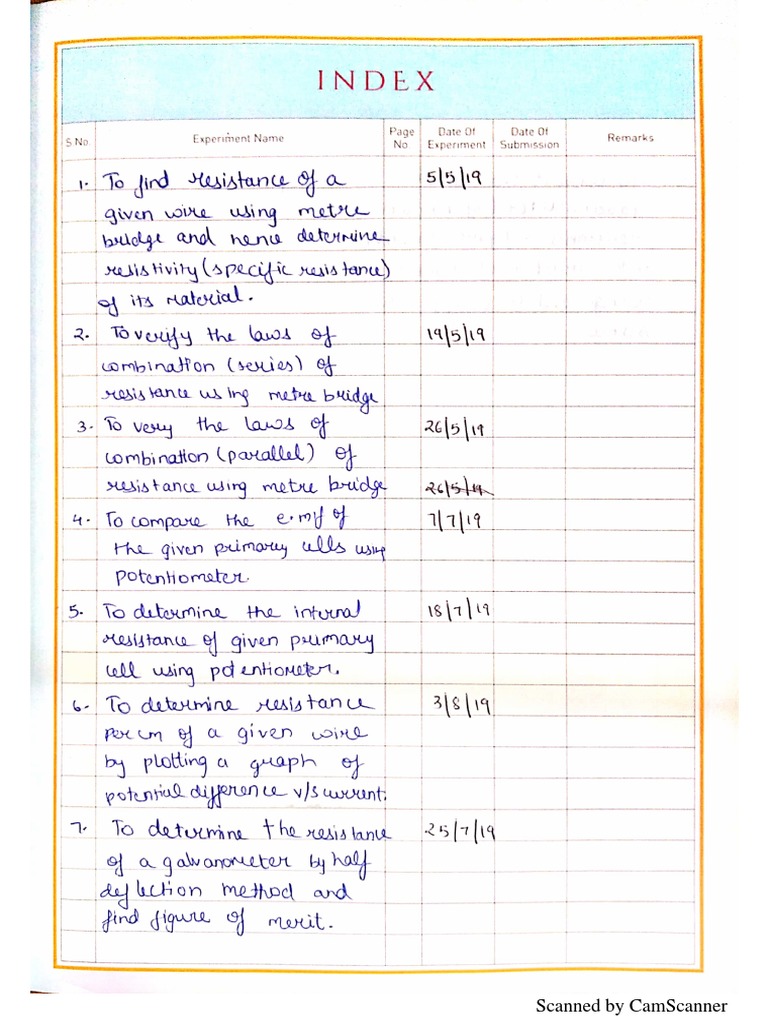 INDEX
S.No. Experiment Name Page No Date Of Experiment Date Of Submission Remarks
1. To find resistance of a 5/5/19
given wire using metre
bridge and hence determine
resistivity (specific resistance)
of its material.
2. To verify the laws of 19/5/19
combination (series) of
resistance using metre bridge
3. To very the laws of 26/5/19
combination (parallel) of
resistance using metre bridge 26/5/19
4. To compare the e.mf of 7/7/19
the given primary cells using
potentiometer.
5. To determine the internal 18/7/19
resistance of given primary
cell using potentiometer.
6. To determine resistance 3/8/19
per cm of a given wire
by plotting a graph of
potential difference v/s current.
7. To determine the resistance 25/7/19
of a galvanometer by half
deflection method and
find figure of merit.
Scanned by CamScanner